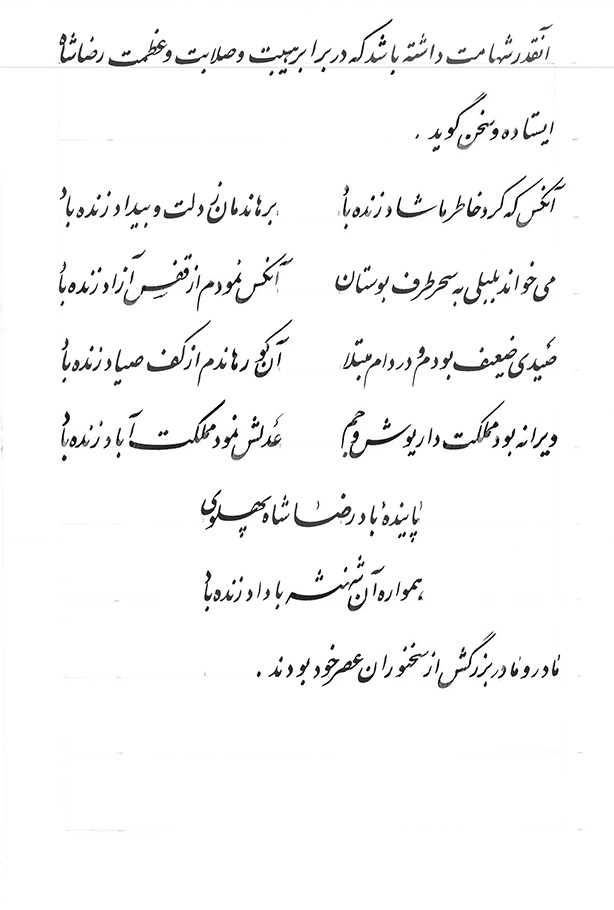 آنقدر شهامت داشته باشد که در برابر هیبت و صلابت و عظمت رضاشاه
ایستاده و سخن گوید .
آنکس که کرد خاطر ما شاد زنده باد برهاندمان ز ذلت و بیداد زنده باد
می خواند بلبلی به سحر طرف بوستان آنکس نمودم از قفس آزاد زنده باد
صیدی ضعیف بودم و در دام مبتلا آن کو رهاندم از کف صیاد زنده باد
ویرانه بود مملکت داریوش و جم عدلش نمود مملکت آباد زنده باد
پاینده باد رضا شاه پهلوی
همواره آن شهنشه با داد زنده باد
مادر و مادر بزرگش از سخنوران عصر خود بودند .